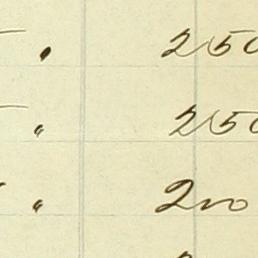 " 250
" 250
" 200